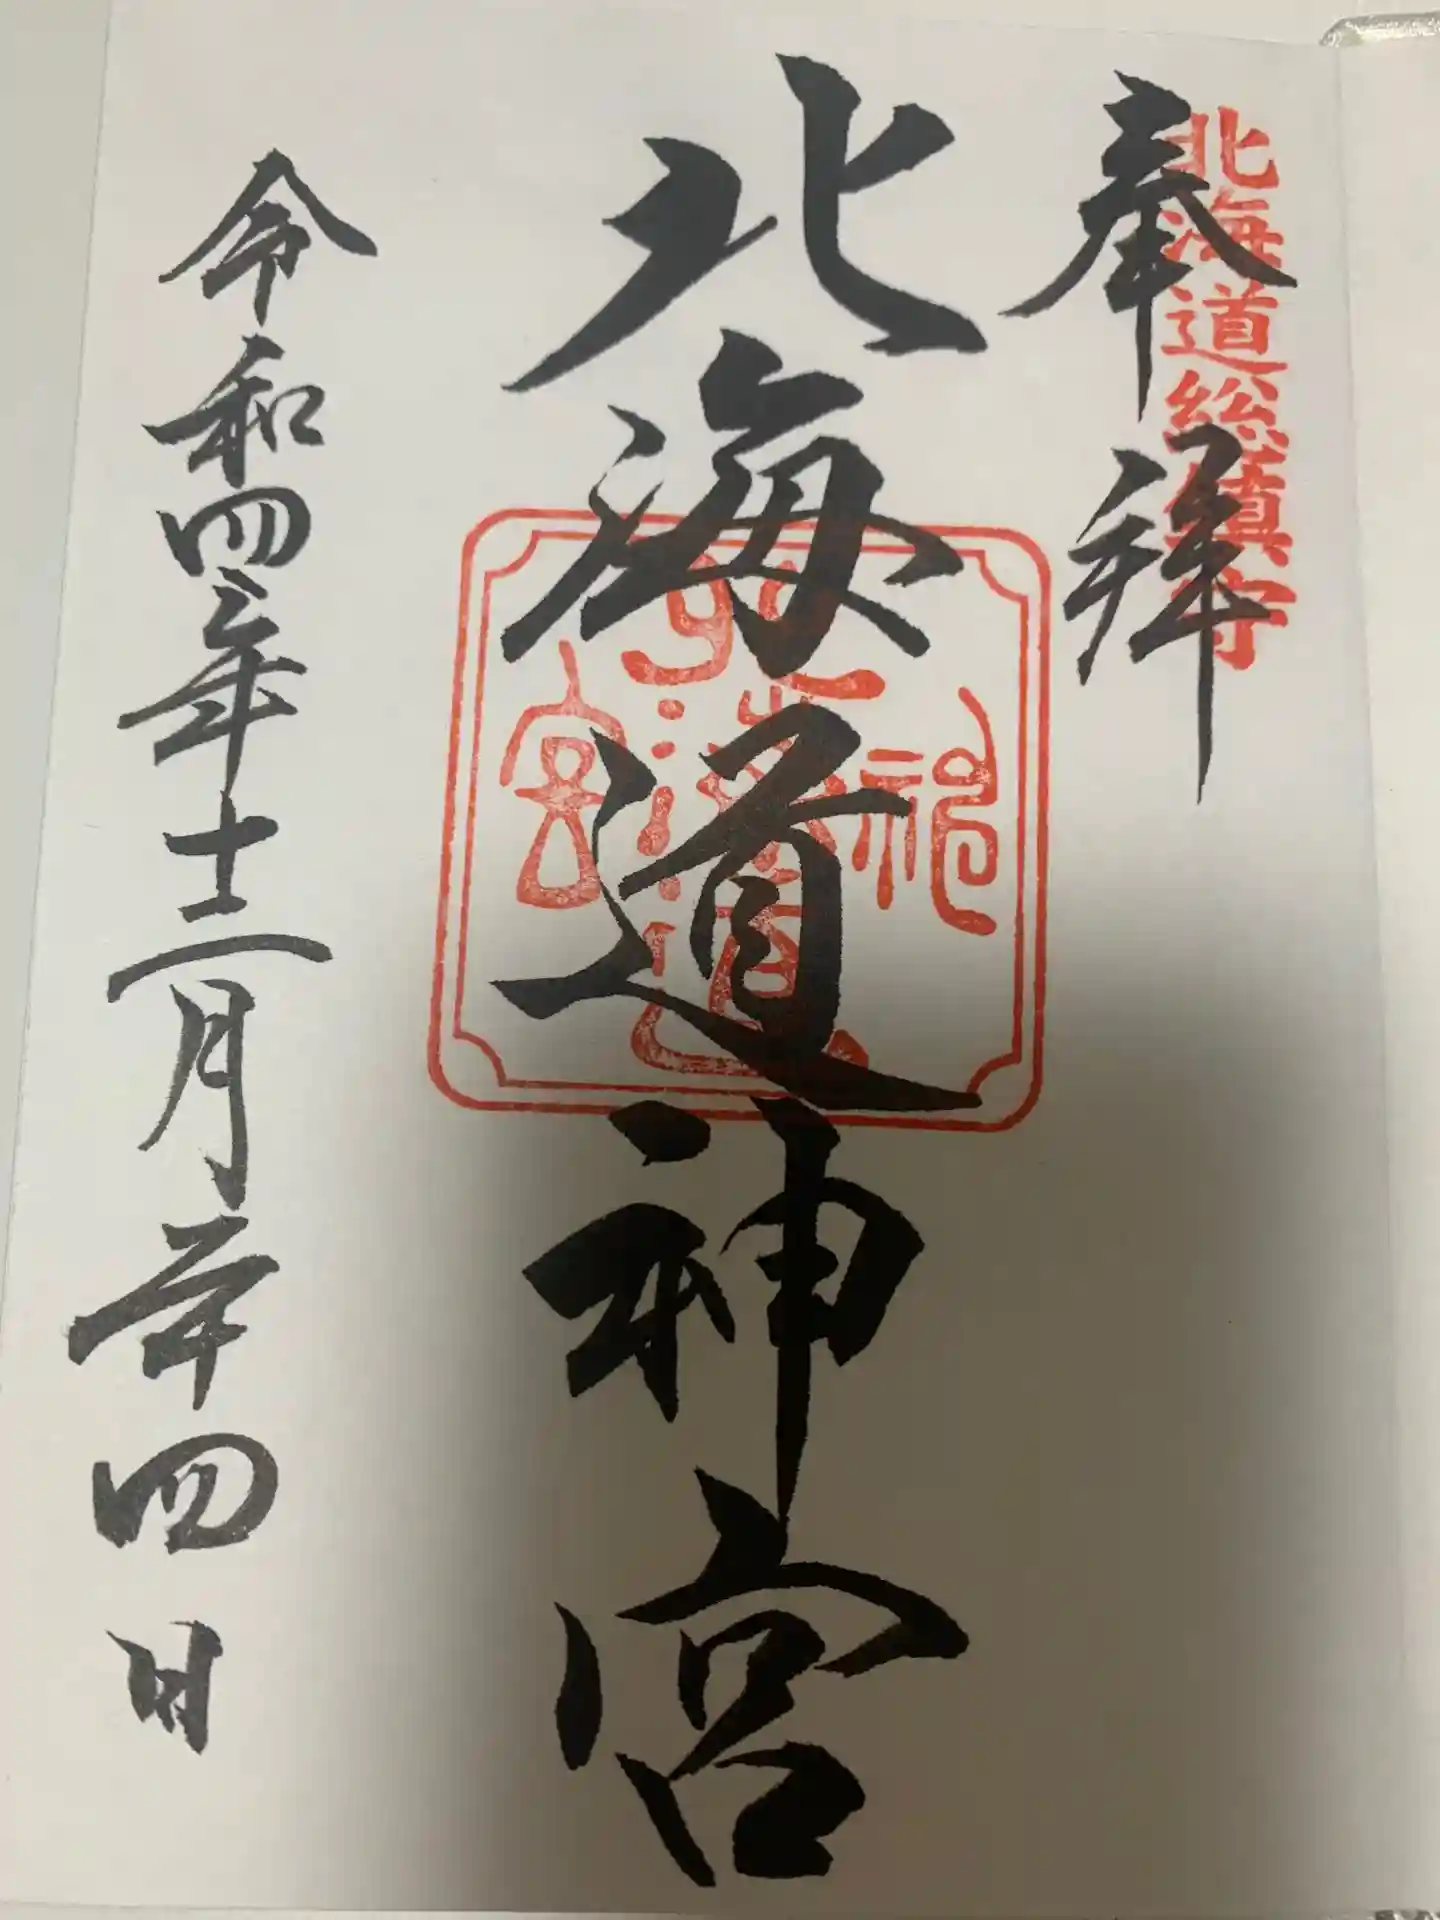 北海道総鎮守
奉拝
北海道神宮
北海道神宮
令和四年十二月二十四日